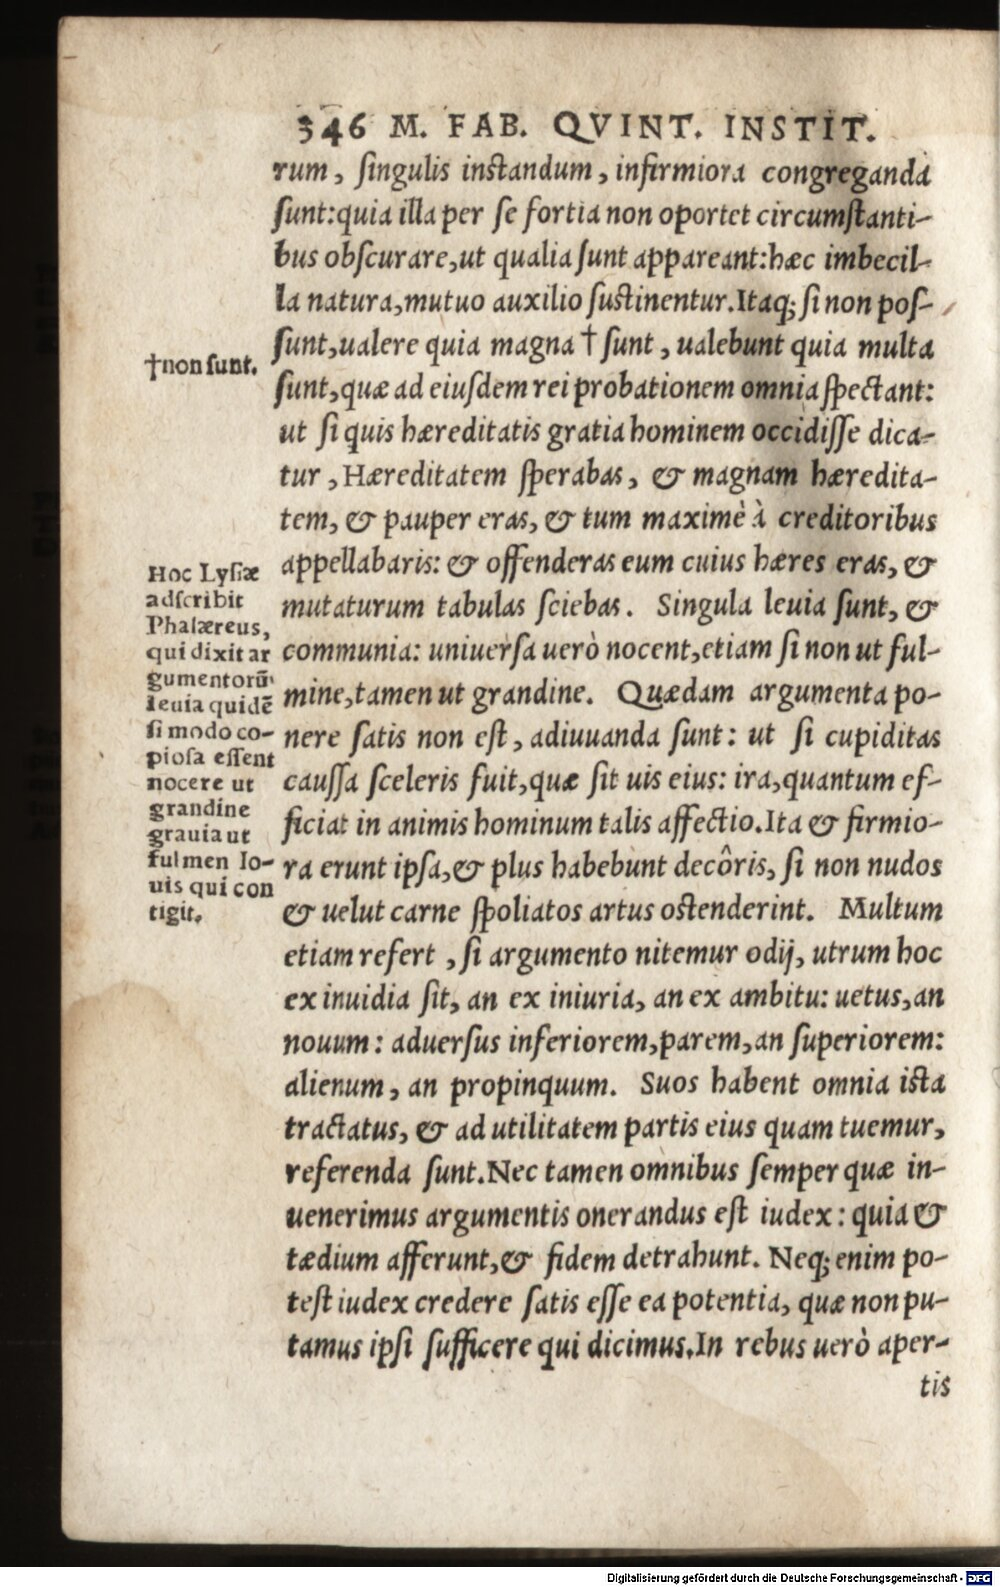 346 M. FAB. QVINT. INSTIT.
rum, singulis instandum, infirmiora congreganda
sunt: quia illa per se fortia non oportet circumstanti-
bus obscurare, ut qualia sunt appareant: hæc imbecil-
la natura, mutuo auxilio sustinentur. Itaq; si non pos-
sunt, ualere quia magna † sunt, ualebunt quia multa
sunt, quæ ad eiusdem rei probationem omnia spectant:
ut si quis hæreditatis gratia hominem occidisse dica-
tur, Hæreditatem sperabas, & magnam hæredita-
tem, & pauper eras, & tum maximè à creditoribus
appellabaris: & offenderas eum cuius hæres eras, &
mutaturum tabulas sciebas. Singula leuia sunt, &
communia: uniuersa uerò nocent, etiam si non ut ful-
mine, tamen ut grandine. Quædam argumenta po-
nere satis non est, adiuuanda sunt: ut si cupiditas
caussa sceleris fuit, quæ sit uis eius: ira, quantum ef-
ficiat in animis hominum talis affectio. Ita & firmio-
ra erunt ipsa, & plus habebunt decôris, si non nudos
& uelut carne spoliatos artus ostenderint. Multum
etiam refert, si argumento nitemur odij, utrum hoc
ex inuidia sit, an ex iniuria, an ex ambitu: uetus, an
nouum: aduersus inferiorem, parem, an superiorem:
alienum, an propinquum. Suos habent omnia ista
tractatus, & ad utilitatem partis eius quam tuemur,
referenda sunt. Nec tamen omnibus semper quæ in-
uenerimus argumentis onerandus est iudex: quia &
tædium afferunt, & fidem detrahunt. Neq; enim po-
test iudex credere satis esse ea potentia, quæ non pu-
tamus ipsi sufficere qui dicimus. In rebus uerò aper-
tis
†non sunt.
Hoc Lysiæ
adscribit
Phalæreus,
qui dixit ar
gumentorũ
leuia quidẽ
si modo co-
piosa essent
nocere ut
grandine
grauia ut
fulmen Io-
uis qui con
tigit.
Digitalisierung gefördert durch die Deutsche Forschungsgemeinschaft - DFG